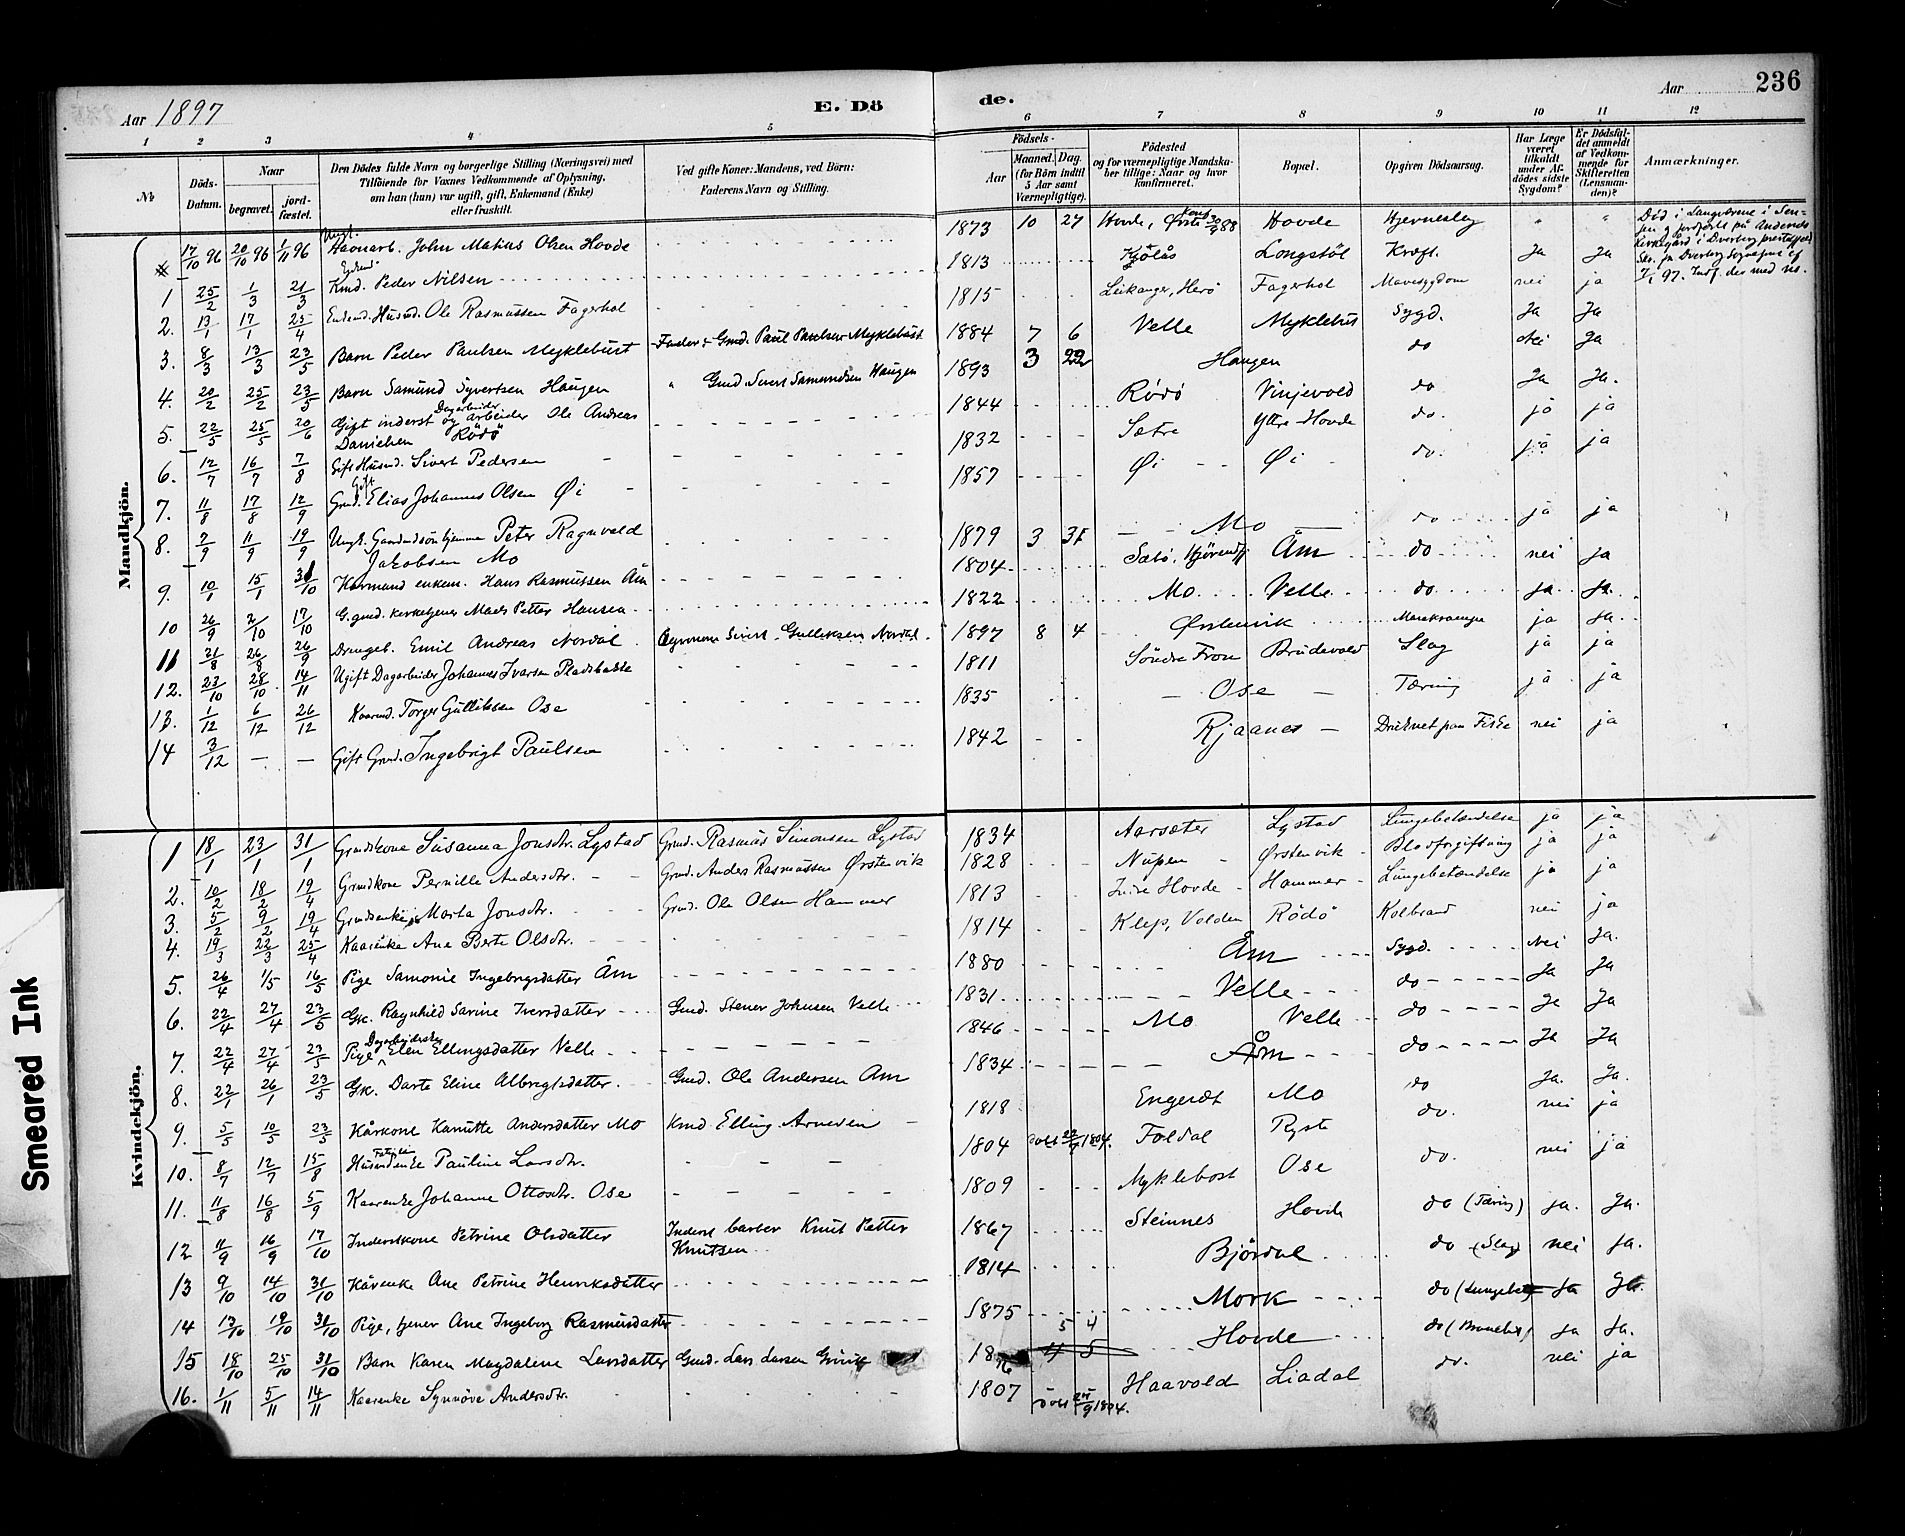 236
Aar 1897
E. Dö de.
Aar
1 2 3 4 5 6 7 8 9 10 11 12
№
Döds-Datum.
Naar
begravet.
jord-fæstet.
Den Dödes fulde Navn og borgerlige Stilling (Næringsvei) med
Tilföiende for Voxnes Vedkommende af Oplysning,
om han (hun) var ugift, gift, Enkemand (Enke)
eller fraskilt.
Ved gifte Koner: Mandens, ved Börn:
Faderens Navn og Stilling.
Födsels-
Aar
Maaned. Dag.
(for Börn indtil
5 Aar samt
Værnepligtige).
Födested
og for værnepligtige Mandska-
ber tillige: Naar og hvor
konfirmeret.
Bopæl.
Opgiven Dödsaarsag.
Har Læge
været
tilkaldt
under Af-
dödes sidste
Sygdom?
Er Dödsfal-
det anmeldt
af Vedkom-
mende for
Skifteretten
(Lensman-
den)?
Anmærkninger.
Mandkjön.
17/10 96 20/10 96 1/11 96 Ungk. John Matius Olsen Hovde 1873 10 27 Hovde, Ørsta Hovde Hjernesley " "
Död i
1 25/2 1/3 21/3 Kmd. Peder Nilsen 1813 Longstöl Kræft. Ja Ja
2. 13/1 17/1 25/4 Husmd. Ole Rasmussen Fagerhol 1815 Leikanger, Herö Fagerhol Mavesygdom nei ja
3. 8/3 13/3 23/5 Barn Peder Paulsen Myklebust Fader: Gmd. Paul Paulsen Myklebust 1884 7 6 Velle Myklebus Sygd. Ja Ja
4. 20/2 25/2 23/5 Barn Samund Syvertsen Haugen " Gmd. Sivert Samundsen Haugen 1893 3 22 Haugen do Nei Ja
5. 22/5 25/5 20/6 Gift inderst og Dagarbeider Ole Andreas
Danielsen Rödö 1844 Rödö Vinjevold do Ja Ja.
6. 12/7 16/7 7/8 Gift Husmd. Sivert Pedersen 1832 Sætre Yttre Hovde do. ja ja
7. 11/8 17/8 12/9 Gift Gmd. Elias Johannes Olsen Øi 1857 Øi Øi do. ja ja
8. 7/9 11/9 19/9 Ungk. Gaardmdsön hjemme Peter Ragnvald
Jakobsen Mo 1879 3 31 Mo do ja ja
9. 10/1 15/1 31/10 Kårmand enkem. Hans Rasmussen Åm 1804 Sæbö, Hjörendfj Åm do nei ja
10 26/9 2/10 17/10 G. gmd. kirketjener Mads Petter Hansen 1822 Mo Velle do ja ja.
11 21/8 26/8 26/9 Drengeb. Emil Andreas Nordal Sivert Gulliksen Nordal 1897 8 4 Ørstenvik Mavekrampe ja Ja.
12. 23/10 28/10 14/11 Ugift Dagarbeider Johannes Ivarsen Pladsbakke 1811 Söndre Fron Brudevold Slag ja ja
13. 1/12 6/12 26/12 Kaarmd. Torger Gulliksen Ose 1835 Ose Tæring ja ja
14 3/12 — — Gift Gmd. Ingebrigt Paulsen 1842 Rjaanes Druknet paa Fiske nei ja
Kvindekjön.
1 18/1 23/1 31/1 Gmdskone Susanna Jonsdtr. Lystad Gmd. Rasmus Simonsen Lystad 1834 Aarsæter Lystad Lungebetændelse ja ja
2. 10/2 18/2 19/4 Gmdkone Pernille Andersdtr. Gmd. Anders Rasmussen Ørstenvik 1828 Nupen Ørstenvik Blodforgiftning ja ja
3. 5/2 9/2 19/4 Gmdsenke Marta Jonsdtr. Gmd. Ole Olsen Hammer 1813 Indre Hovde Hammer Lungebetændelse ja ja
4. 19/3 22/3 25/4 Kaarenke Ane Berte Olsdtr. 1814 Klep, Volden Rödö Kolbrand nei ja
5. 26/4 1/5 16/5 Pige Samonie Ingebrigsdatter Åm 1880 Åm Sygd. Nei Ja.
6. 22/4 27/4 23/5 Gk. Ragnhild Sarine Iversdatter Gmd. Stener Johnsen Velle 1831 Velle do Ja Ja
7. 22/4 27/4 23/5 Pige Dagarbeiderske Elen Ellingsdatter Velle 1846 Mo Velle do Ja Ja
8. 22/1 26/1 23/5 Gk. Dorte Eline Albregtsdatter. Gmd. Ole Andersen Åm 1834 Åm do Ja Ja
9. 5/5 10/5 23/5 Kårkone Kanutte Andersdatter Mo Kmd. Elling Arnesen 1818 Engeset Mo do Ja. Ja.
10. 8/7 12/7 15/8 Husmdenke Pauline Larsdtr. 1804 döbt 23/9 1804. Foldal Ryste do. nei ja
11. 11/8 16/8 5/9 Kaarenke Johanne Ottosdtr. Ose 1809 Myklebost Ose do. nei ja
12 11/9 16/9 17/10 Inderstkone Petrine Olsdatter Inderst barber Knut Petter
Knutsen 1867 Steinnes Hovde do (Tæring) ja. Ja.
13 9/10 14/10 31/10 Kårenke Ane Petrine Henriksdatter 1814 Björdal do (Slag) nei ja.
14 13/10 19/10 31/10 Pige, tjener Ane Ingeborg Rasmusdatter 1875 Mork do Ja Ja.
15 18/10 25/10 31/10 Barn Karen Magdalene Larsdatter Gmd. Lars Larsen 18 5 4 Hovde do ja Ja.
16. 1/11 5/11 14/11 Kaarenke Synnöve Andersdtr. 1807 döbt 24/9 1804. Haavold Liadal do. nei ja
Smeared Ink